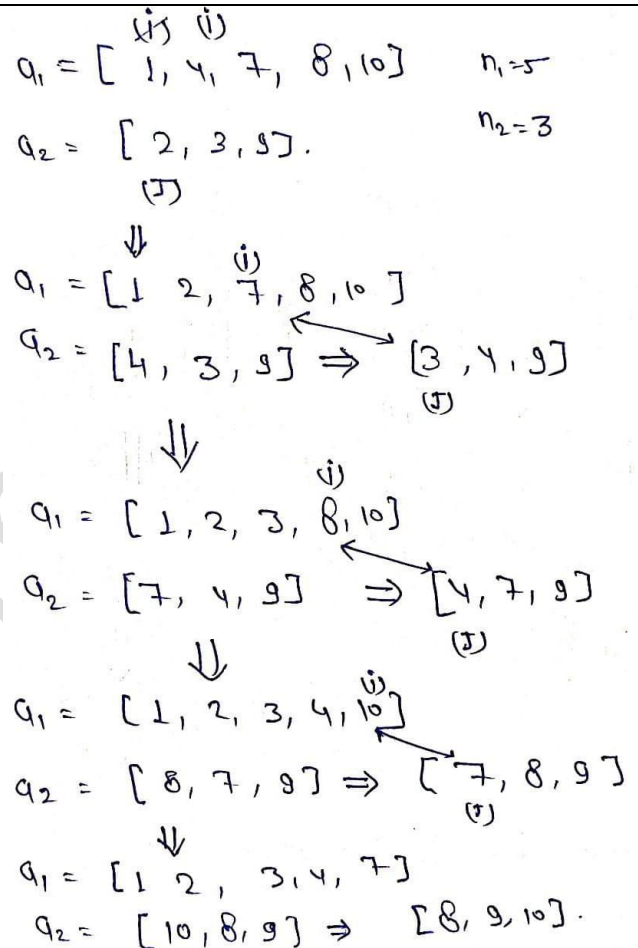 (i) (i)
a₁ = [ 1, 4, 7, 8, 10] n₁=5
a₂ = [ 2, 3, 9]. n₂=3
(J)
⇓
(i)
a₁ = [1 2, 7, 8, 10 ]
a₂ = [4, 3, 9] ⇒ [3, 4, 9]
(J)
⇓
(i)
a₁ = [ 1, 2, 3, 8, 10]
a₂ = [7, 4, 9] ⇒ [4, 7, 9]
(J)
⇓
(i)
a₁ = [1, 2, 3, 4, 10]
a₂ = [ 8, 7, 9] ⇒ [ 7, 8, 9]
(J)
⇓
a₁ = [1 2, 3, 4, 7]
a₂ = [10, 8, 9] ⇒ [8, 9, 10].